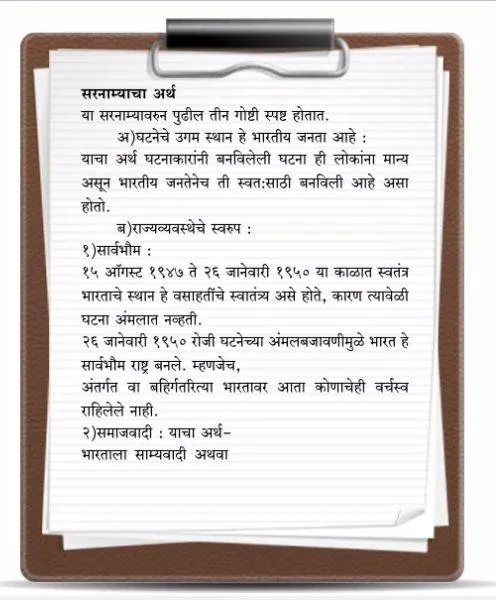 सरनाम्याचा अर्थ
या सरनाम्यावरुन पुढील तीन गोष्टी स्पष्ट होतात.
अ)घटनेचे उगम स्थान हे भारतीय जनता आहे :
याचा अर्थ घटनाकारांनी बनविलेली घटना ही लोकांना मान्य
असून भारतीय जनतेनेच ती स्वत:साठी बनविली आहे असा
होतो.
ब)राज्यव्यवस्थेचे स्वरुप :
१)सार्वभौम :
१५ ऑगस्ट १९४७ ते २६ जानेवारी १९५० या काळात स्वतंत्र
भारताचे स्थान हे वसाहतींचे स्वातंत्र्य असे होते, कारण त्यावेळी
घटना अंमलात नव्हती.
२६ जानेवारी १९५० रोजी घटनेच्या अंमलबजावणीमुळे भारत हे
सार्वभौम राष्ट्र बनले. म्हणजेच,
अंतर्गत वा बहिर्गतरित्या भारतावर आता कोणाचेही वर्चस्व
राहिलेले नाही.
२)समाजवादी : याचा अर्थ–
भारताला साम्यवादी अथवा